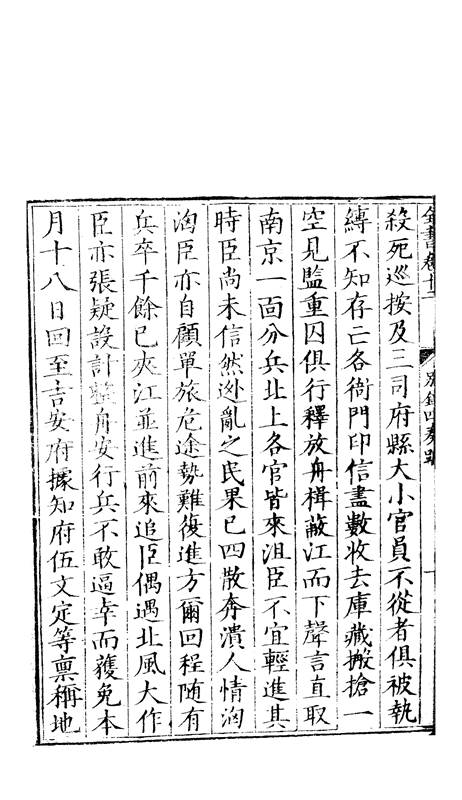 全書卷十二 別錄四奏疏 一
殺死巡按及三司府縣大小官員不從者俱被執
縛不知存亡各衙門印信盡數收去庫藏搬搶一
空見監重囚俱行釋放舟楫蔽江而下聲言直取
南京一面分兵北上各官皆來沮臣不宜輕進其
時臣尚未信然逃亂之民果已四散奔潰人情洶
洶臣亦自顧單旅危途勢難復進方爾回程随有
兵卒千餘已夾江並進前來追臣偶遇北風大作
臣亦張疑設計整舟安行兵不敢逼幸而獲免本
月十八日回至吉安府據知府伍文定等禀稱地